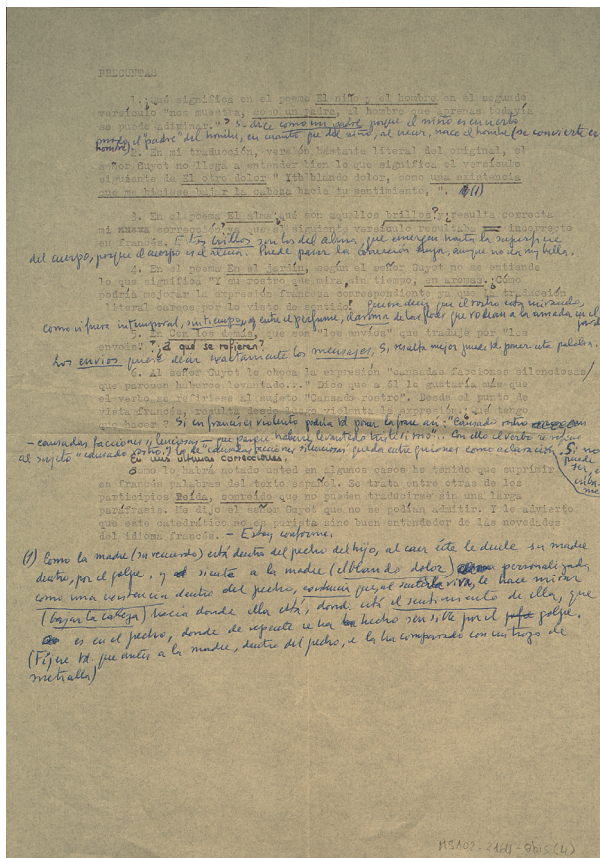 PREGUNTAS
1. ¿Qué significa en el poema El niño y el hombre en el segundo
versículo "nos muestra, como un padre, al hombre que apenas todavía
se puede adivinar."? Se dice como un padre porque el niño es en cierto
modo el "padre" del hombre, en cuanto que del niño, al crecer, nace el hombre (se convierte en
hombre).
2. En mi traducción, versión bastante literal del original, el
señor Guyot no llega a entender bien lo que significa el versículo
siguiente de El otro dolor " Yth blando dolor, como una existencia
que me hiciese bajar la cabeza hacia tu sentimiento, ". (1)
3. En el poema El alma ¿qué son aquellos brillos? ¿y resulta correcta
mi nueva corrección ya que el siguiente versículo resultaba incorrecto
en francés. Estos brillos son los del alma, que emergen hasta la superficie
del cuerpo, porque el cuerpo es el alma. Puede pasar la corrección suya, aunque no es muy bella.
4. En el poema En el jardín, según el señor Guyot no me entiende
lo que significa "Y su rostro que mira, sin tiempo, un aroma. ¿Cómo
podría mejorar la expresión francesa correspondiente ya que la traducción
literal carece por lo visto de sentido? Quiere decir que el rostro está mirando,
como si fuera intemporal, sin tiempo, entre el perfume, el aroma de las flores que rodean a la amada en el
jardín
5. En Con los demás, ¿qué son "los envíos" que traduje por "les
envois"? ¿A qué se refieren?
Los envíos quiere decir exactamente los mensajes. Si resulta mejor puede Vd. poner esta palabra.
6. Al señor Guyot le choca la expresión "cansadas facciones silenciosas/
que parecen haberse levantado..." Dice que a él le gustaría más que
el verbo se refiriese al sujeto "Cansado rostro". Desde el punto de
vista francés, resulta desde luego violenta la expresión. ¿Qué tengo
que hacer? Si en francés es violento podría Vd. poner la frase así: "Cansado rostro
—cansadas facciones silenciosas— que parece haberse levantado tristísimo". Con ello el verbo se refiere
al sujeto "cansado rostro" y lo de "cansadas facciones silenciosas" queda entre guiones como aclaración. Si no
puede
ser,
En mis últimas correcciones,
Como lo habrá notado usted en algunos casos he tenido que suprimir
en francés palabras del texto español. Se trata entre otras de los
participios Beida, contenido que no pueden traducirse sin una larga
paráfrasis. Me dijo el señor Guyot que no se podían admitir. Y le advierto
que este catedrático no es purista sino buen entendedor de las novedades
del idioma francés. — Estoy conforme.
(1) Como la madre (su recuerdo) está dentro del pecho del hijo, al caer éste le duele su madre
dentro, por el golpe, y siente a la madre (el blando dolor) personalizada
como una existencia dentro del pecho, existencia que, al sentirla viva, le hace mirar
(bajar la cabeza) hacia donde ella está, donde está el sentimiento de ella, que
es en el pecho, donde de repente se ha hecho sensible por el golpe.
(Fíjese Vd. que antes a la madre, dentro del pecho, se la ha comparado con un trozo de
metralla)
MS102-2164-8bis(4)